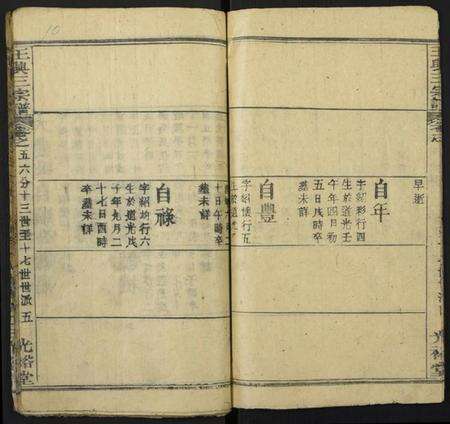 早逝
自年
字紹彩行四
生於道光壬
午年四月初
五日戌時卒
葬未詳
自豐
行五
十日午時卒
葬未詳
自祿
字紹均行六
生於道光戊
年九月二
十七日酉時
卒葬未詳
王興三宗譜 卷之五六分十三世至十七世世派 五 光裕堂
10